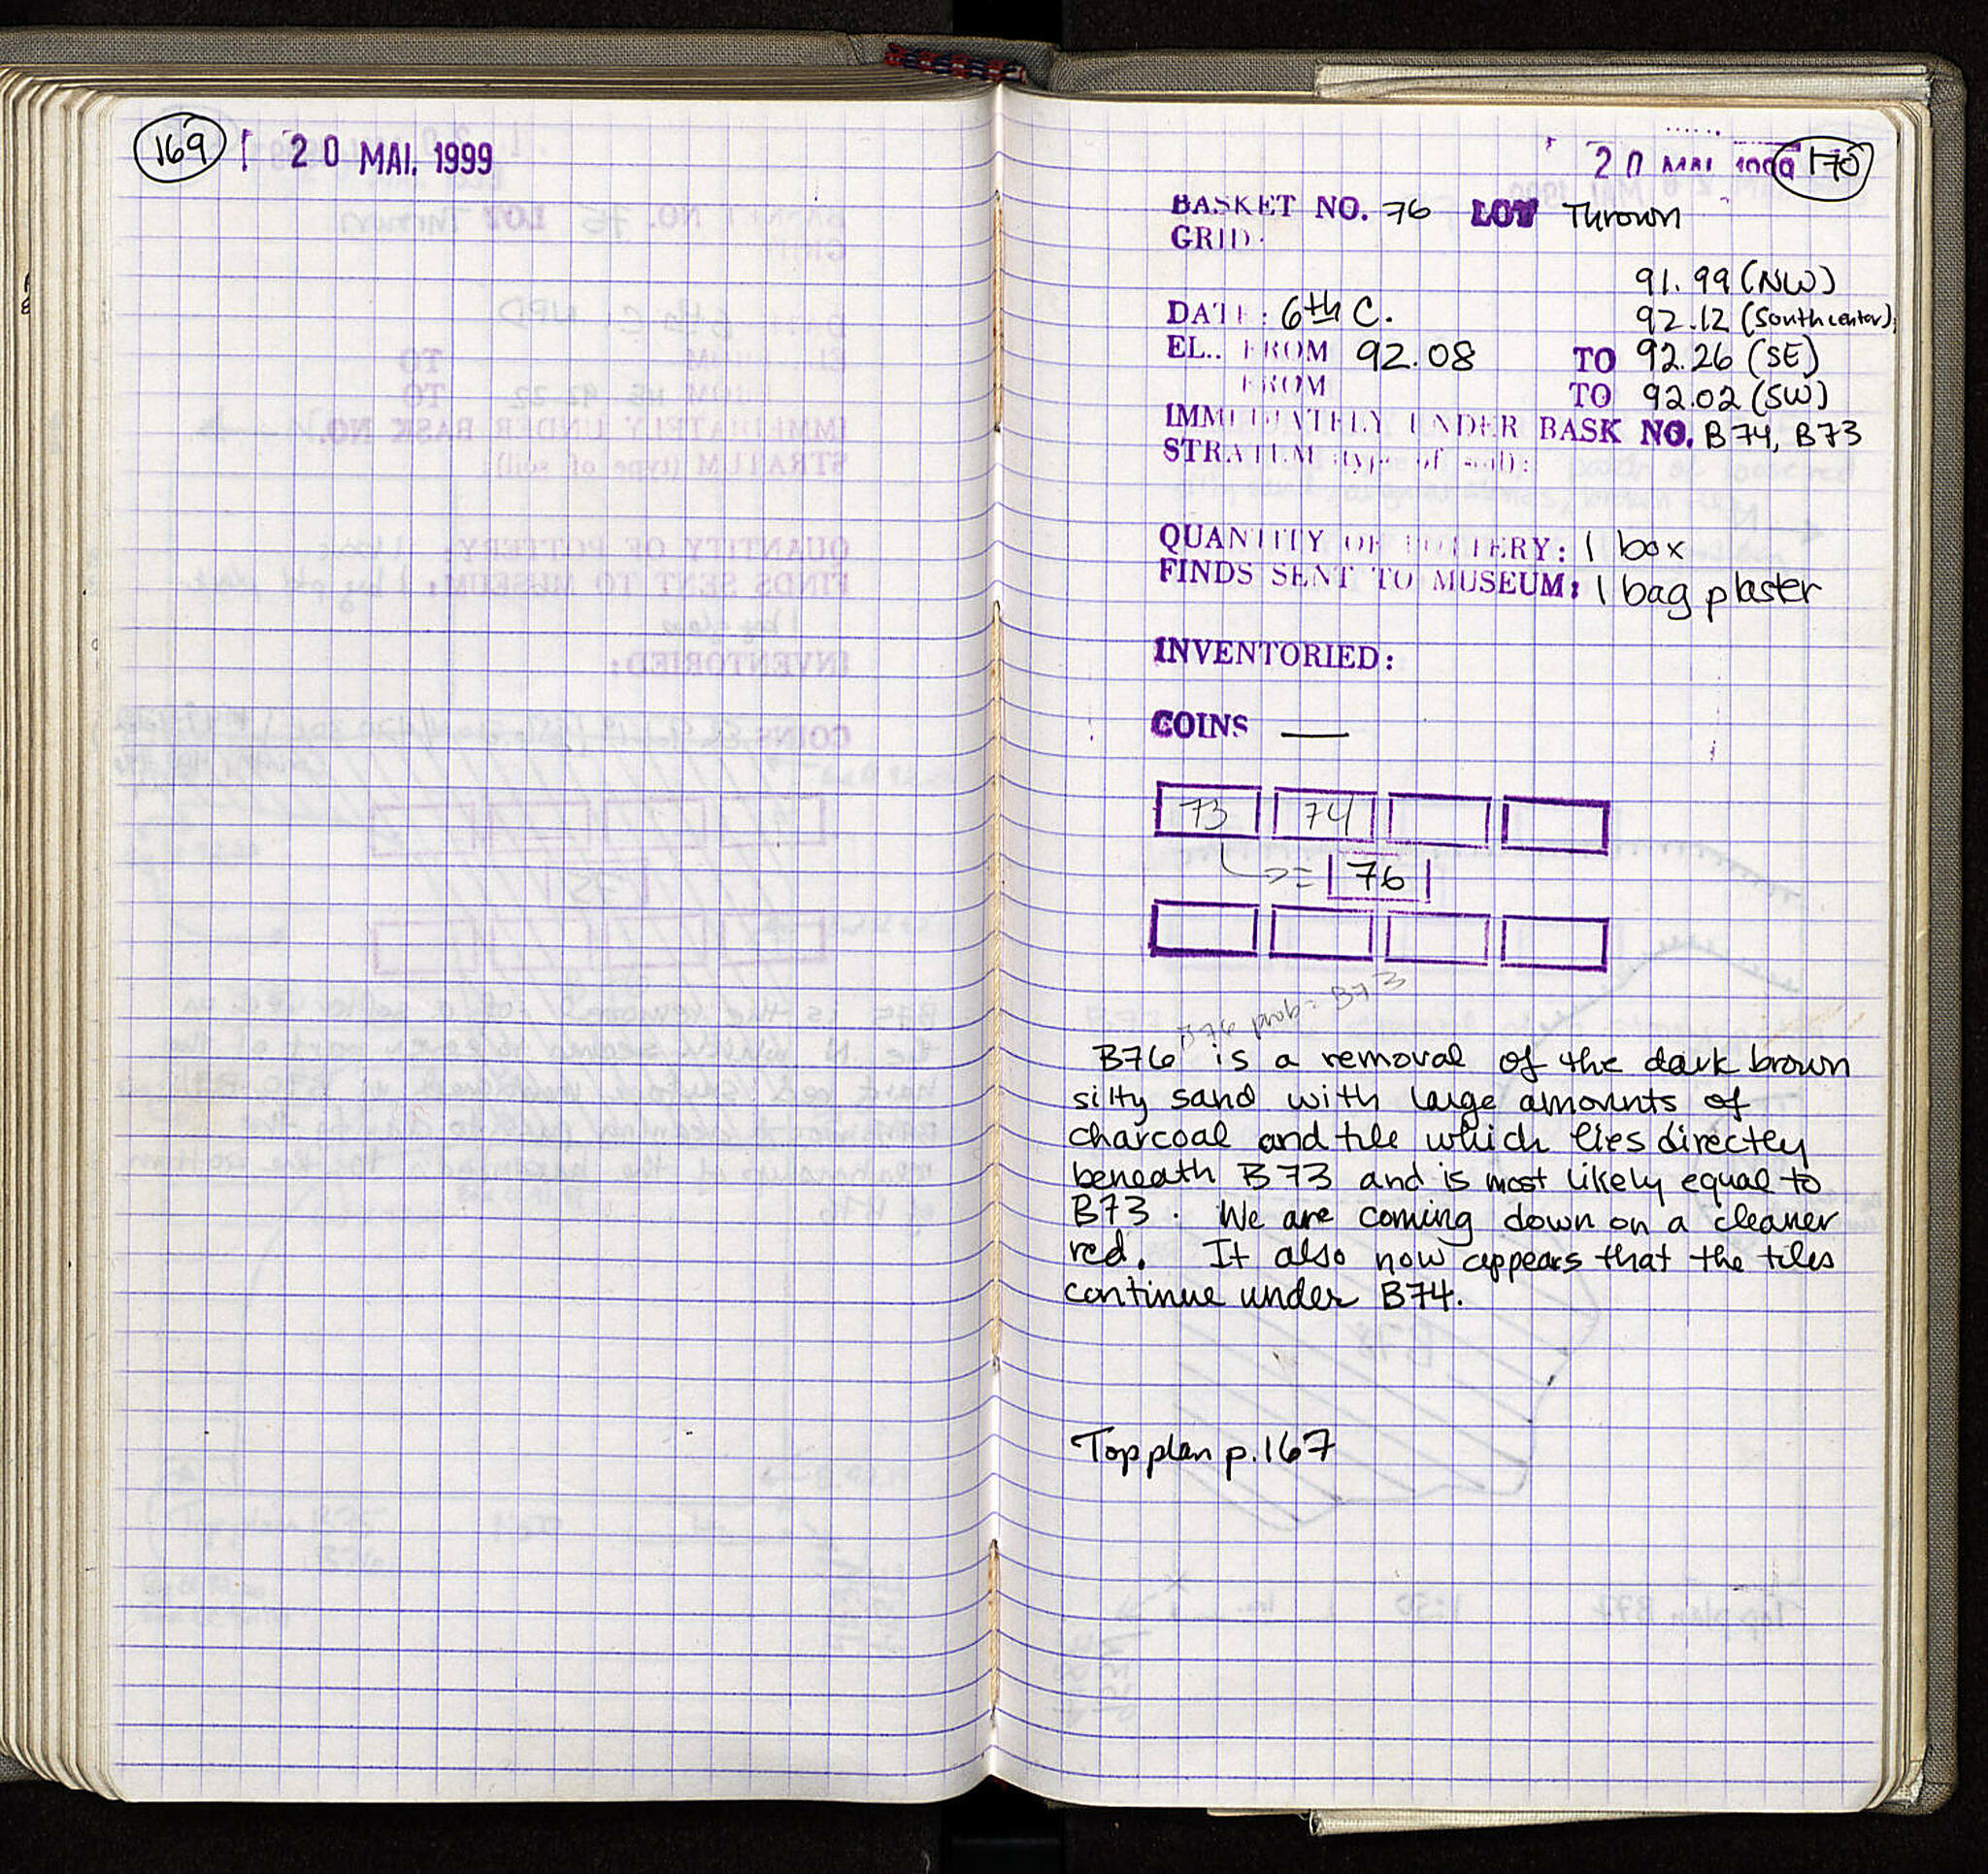 169
20 MAI. 1999
20 MAI 1999 170
BASKET NO. 76 LOT Thrown
GRID:
91.99 (NW)
92.12 (South center)
DATE: 6th C.
EL.. FROM 92.08 TO 92.26 (SE)
FROM TO 92.02 (SW)
IMMEDIATELY UNDER BASK NO. B74, B73
STRATUM (type of soil):
QUANTITY OF POTTERY: 1 box
FINDS SENT TO MUSEUM: 1 bag plaster
INVENTORIED:
COINS —
73 74
= 76
B76 prob = B73
B76 is a removal of the dark brown
silty sand with large amounts of
charcoal and tile which lies directly
beneath B73 and is most likely equal to
B73. We are coming down on a cleaner
red. It also now appears that the tiles
continue under B74.
Top plan p.167